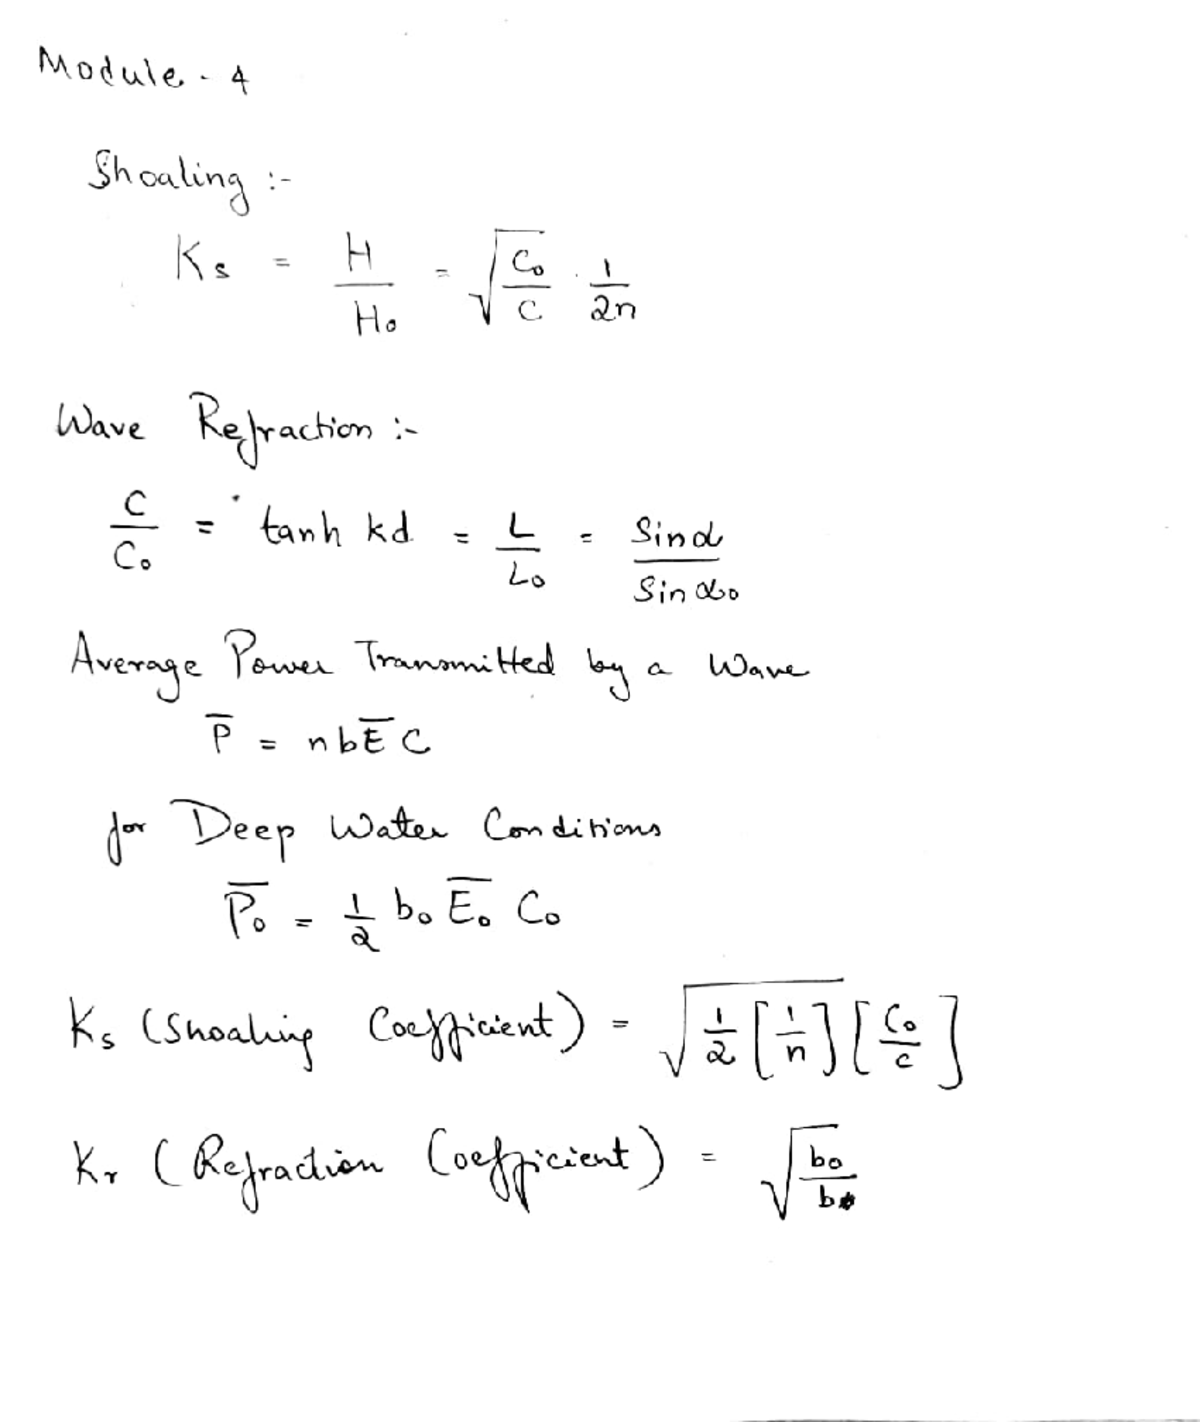 Module - 4
Shoaling :-
Ks = H/Ho = √(Co/C) · 1/2n
Wave Refraction :-
C/Co = tanh kd = L/Lo = Sinα/Sin αo
Average Power Transmitted by a Wave
P̅ = nbE̅C
for Deep Water Conditions
P̅o = 1/2 bo E̅o Co
Ks (Shoaling Coefficient) = √(1/2 [1/n] [Co/c])
Kr (Refraction Coefficient) = √(bo/b)